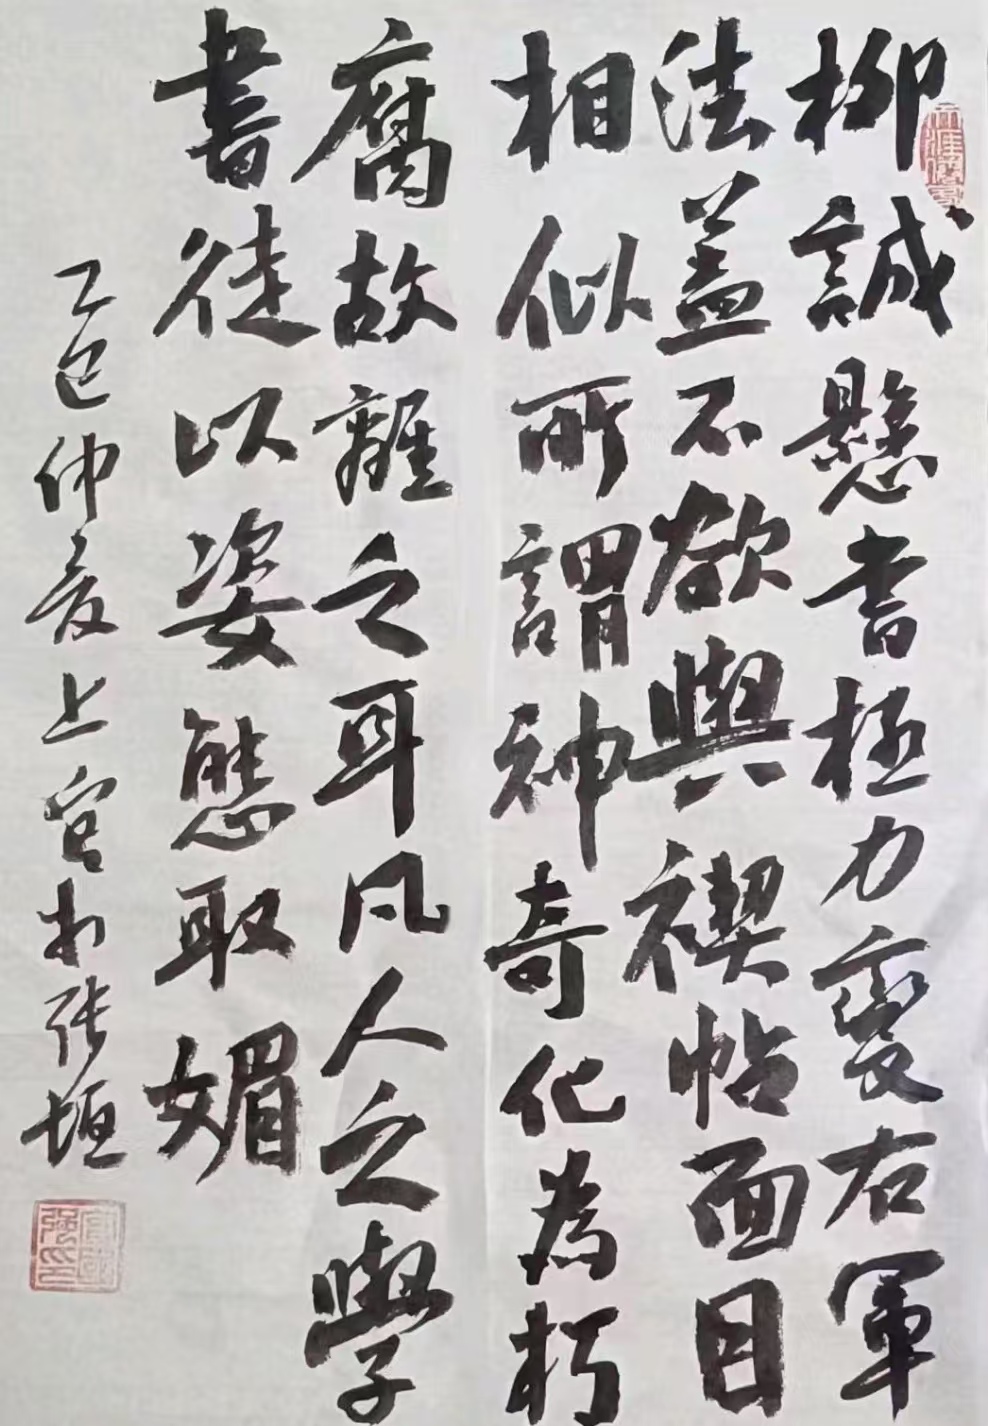 柳誠懸書極力變右軍
法蓋不欲與禊帖面目
相似所謂神奇化為朽
腐故離之耳凡人之學
書徒以姿態取媚
乙巳仲夏上官张垣